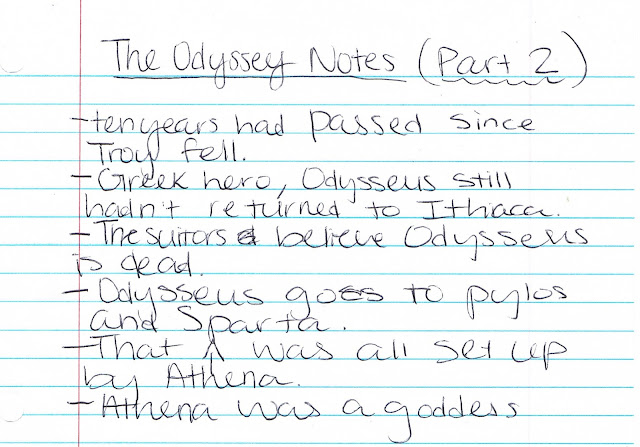 The Odyssey Notes (Part 2)
-ten years had passed since
Troy fell.
-Greek hero, Odysseus still
hadn't returned to Ithaca.
-The suitors believe Odysseus
is dead.
-Odysseus goes to pylos
and Sparta.
-That was all set up
by Athena.
-Athena was a goddess